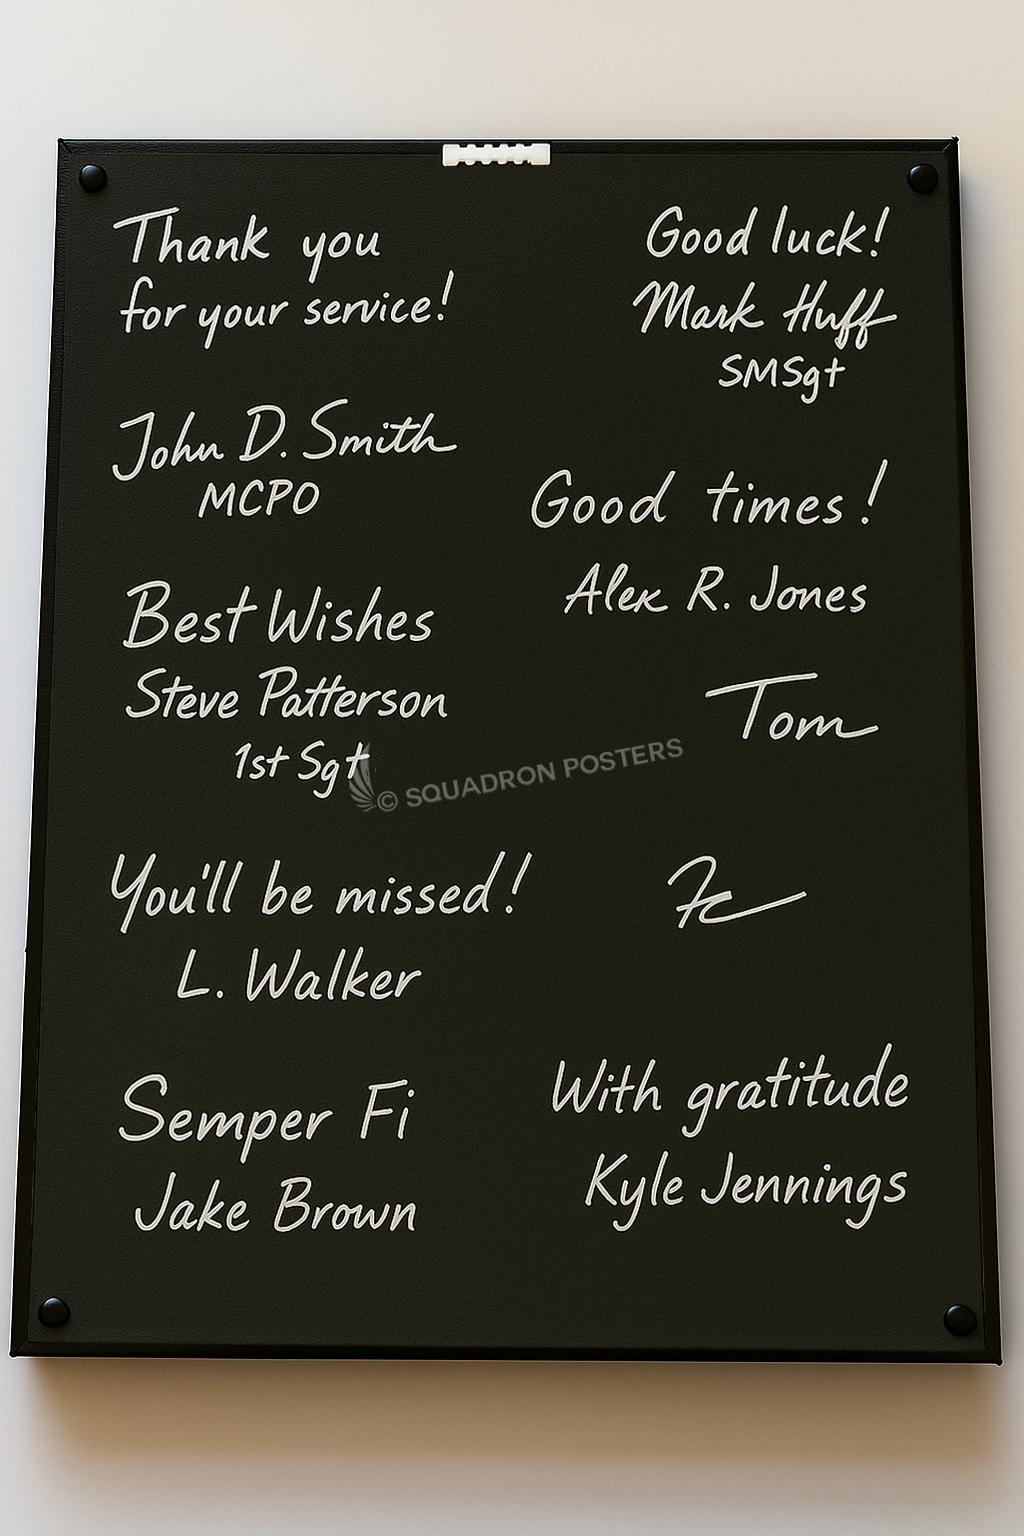 Thank you
for your service!
John D. Smith
MCPO
Best Wishes
Steve Patterson
1st Sgt
You'll be missed!
L. Walker
Semper Fi
Jake Brown
Good luck!
Mark Huff
SMSgt
Good times!
Alex R. Jones
Tom
With gratitude
Kyle Jennings
© SQUADRON POSTERS